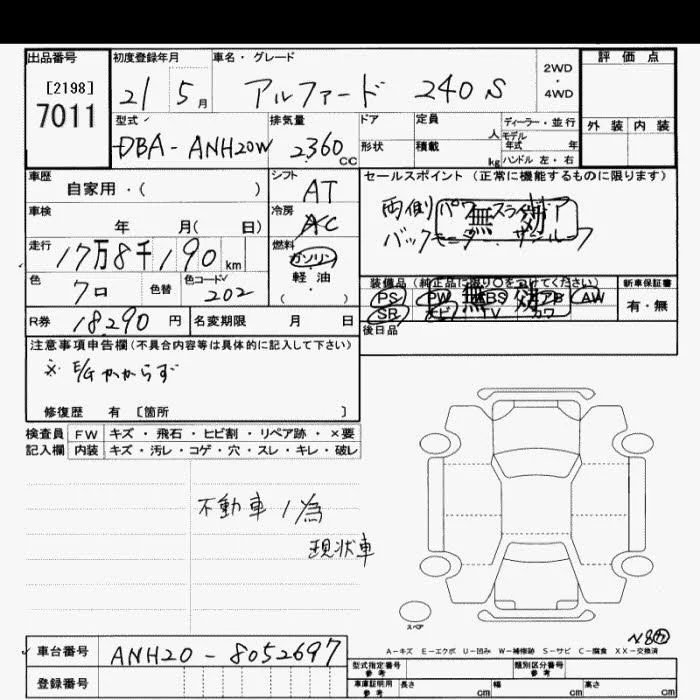 出品番号
[2198]
7011
初度登録年月
21 5月
車名・グレード
アルファード 240 S
2WD
・
4WD
評価点
外装 内装
型式
DBA-ANH20W
排気量
2360 CC
ドア
形状
定員 人
積載 kg
ディーラー・並行
モデル
年式 年
ハンドル 左・右
車歴
自家用・( )
シフト
AT
セールスポイント (正常に機能するものに限ります)
両側パワースライドドア
バックモニター サンルーフ
無効
車検
年 月( 日)
冷房
AC
走行
17万8千190 km
燃料
ガソリン
軽油
( )
色
クロ
色替
色コードNo
202
装備品 (純正品に限り○をつけてください)
PS PW ABS エアB AW
SR ナビ TV カワ
無効
新車保証書
有・無
R券
18,290 円
名変期限 月 日
後日品
注意事項申告欄(不具合内容等は具体的に記入して下さい)
※ E/Gかからず
修復歴 有 [箇所 ]
検査員
記入欄
FW キズ・飛石・ヒビ割・リペア跡・×要
内装 キズ・汚レ・コゲ・穴・スレ・キレ・破レ
不動車ノ為
現状車
スペア
A-キズ E-エクボ U-凹み W-補修跡 S-サビ C-腐食 XX-交換済
車台番号
ANH20-8052697
登録番号
型式指定番号
参考
類別区分番号
参考
車庫証明用
参考
長さ cm
幅 cm
高さ cm